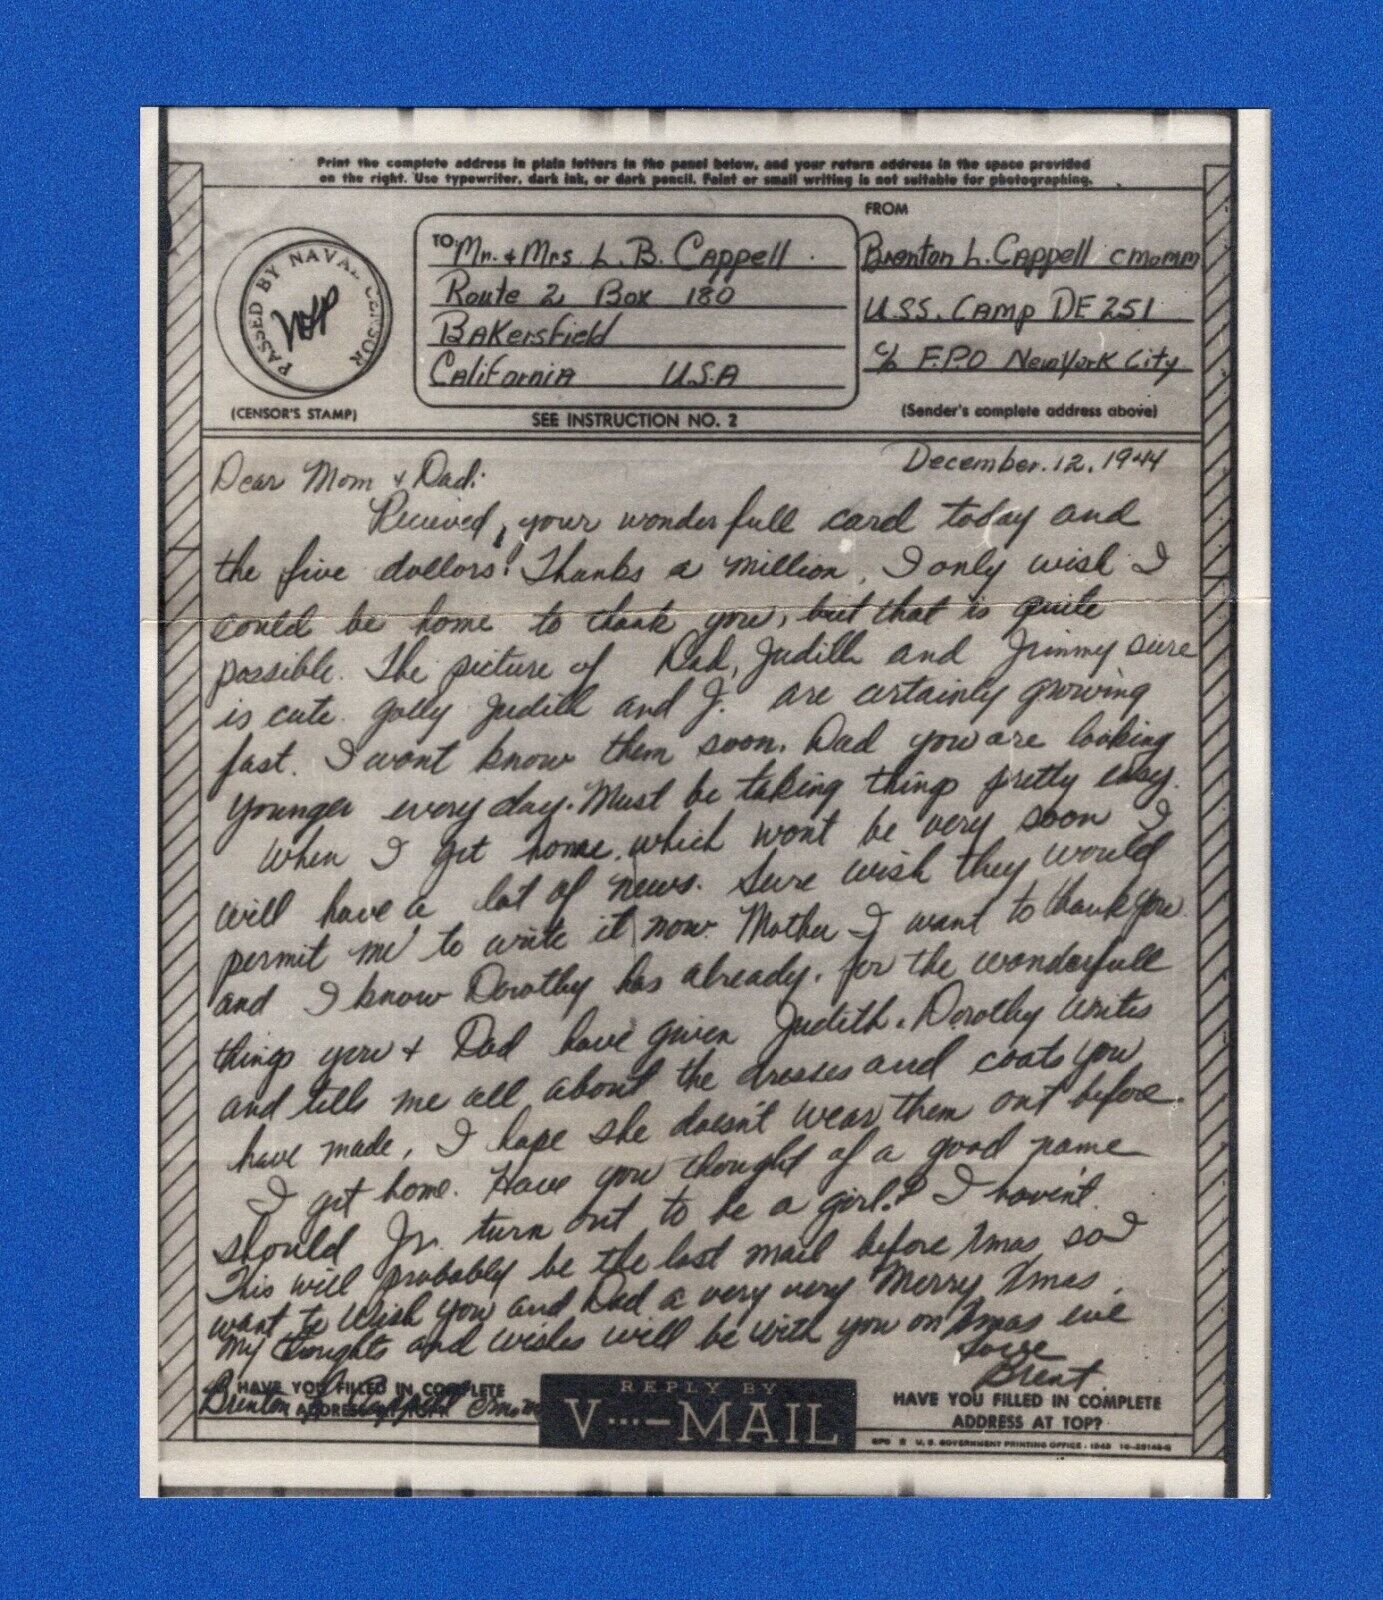 Print the complete address in plain letters in the panel below, and your return address in the space provided
on the right. Use typewriter, dark ink, or dark pencil. Faint or small writing is not suitable for photographing.
PASSED BY NAVAL CENSOR
(CENSOR'S STAMP)
TO: Mr. & Mrs L. B. Cappell
Route 2 Box 180
Bakersfield
California U.S.A
SEE INSTRUCTION NO. 2
FROM
Brenton L. Cappell CMoMM
U.S.S. Camp DE 251
c/o F.P.O New York City
(Sender's complete address above)
December. 12, 1944
Dear Mom & Dad:
Recieved, your wonderfull card today and
the five dollars! Thanks a million, I only wish I
could be home to thank you, but that is quite
possible. The picture of Dad, Judith and Jimmy sure
is cute. Golly Judith and J. are certainly growing
fast. I wont know them soon. Dad you are looking
younger every day. Must be taking things pretty easy.
When I get home, which wont be very soon I
will have a lot of news. Sure wish they would
permit me to write it now. Mother I want to thank you
and I know Dorothy has already, for the wonderfull
things you & Dad have given Judith. Dorothy writes
and tells me all about the dresses and coats you
have made, I hope she doesn't wear them out before
I get home. Have you thought of a good name
should Jr. turn out to be a girl? I haven't.
This will probably be the last mail before Xmas so I
want to wish you and Dad a very very Merry Xmas.
My thoughts and wishes will be with you on Xmas eve
Love
Brent.
HAVE YOU FILLED IN COMPLETE
ADDRESS AT TOP?
Brenton L. Cappell CMoMM
REPLY BY
V···—MAIL
HAVE YOU FILLED IN COMPLETE
ADDRESS AT TOP?
U. S. GOVERNMENT PRINTING OFFICE : 1943